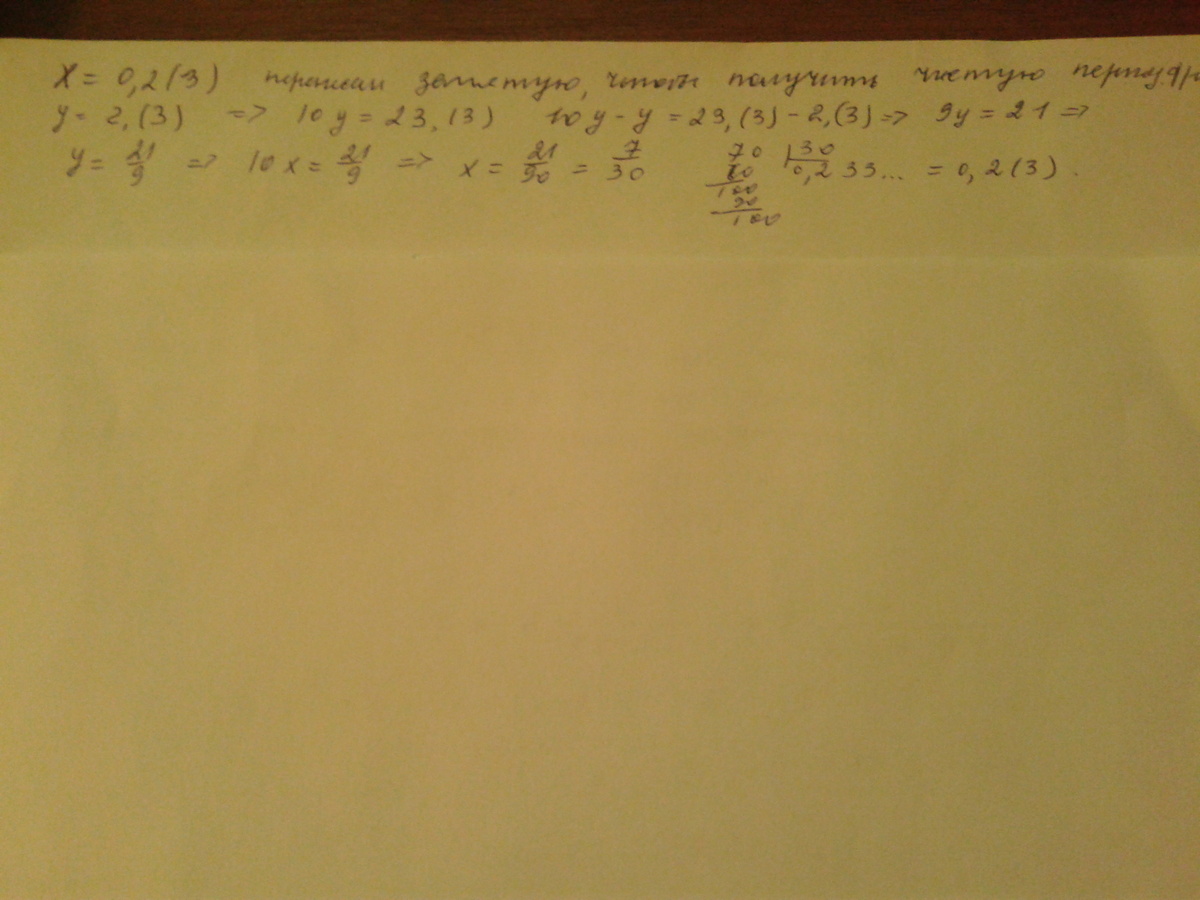 X = 0,2(3) перенесём запятую, чтобы получить чистую период. др
y = 2,(3) => 10y = 23,(3) 10y - y = 23,(3) - 2,(3) => 9y = 21 =>
y = 21/9 => 10x = 21/9 => x = 21/90 = 7/30 70 |30 0,233... = 0,2(3).
60
100
90
100